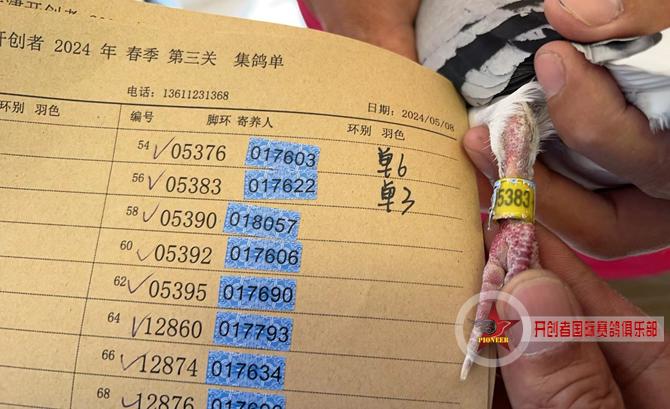 开创者 2024 年 春季 第三关 集鸽单
电话: 13611231368
日期: 2024/05/08
环别 羽色
编号 脚环 寄养人 环别 羽色
54 05376 017603 单6
56 05383 017622 单3
58 05390 018057
60 05392 017606
62 05395 017690
64 12860 017793
66 12874 017634
68 12876
5383
开创者国际赛鸽俱乐部
PIONEER